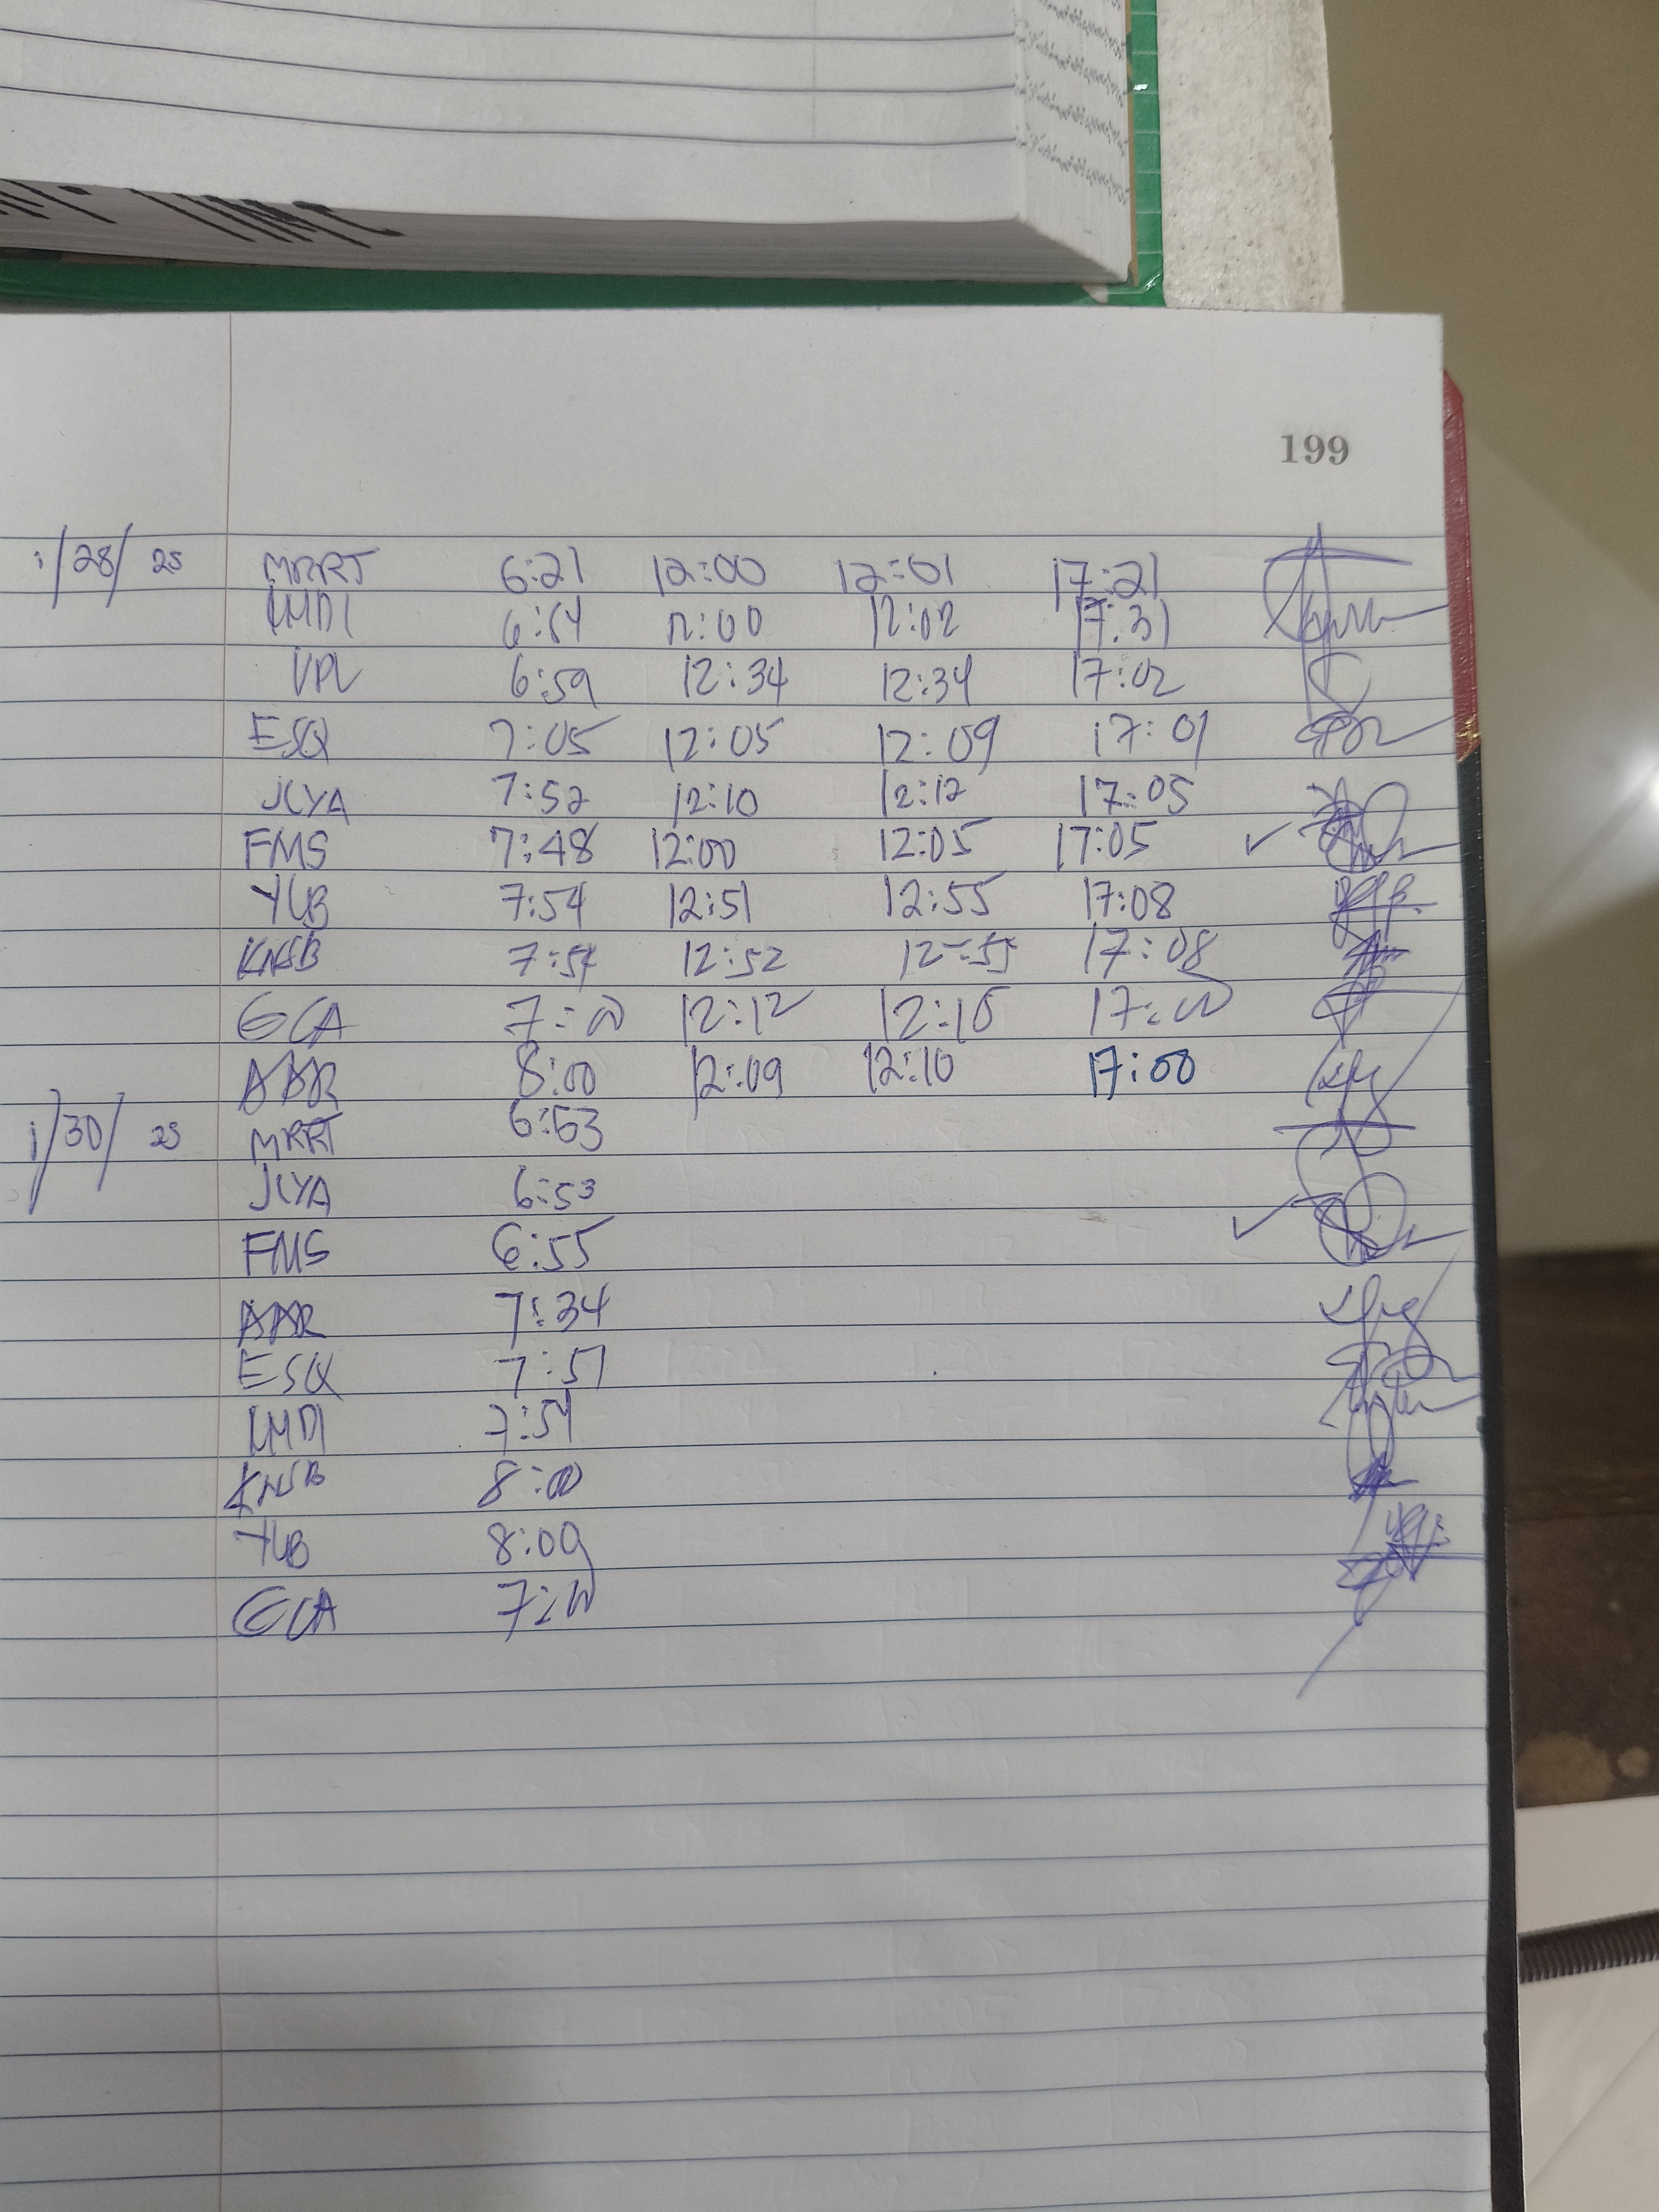 TIME
199
1/28/25 MRRT 6:21 12:00 12:01 17:21
LMDI 6:54 12:00 12:02 17:31
VPL 6:59 12:34 12:34 17:02
ESQ 7:05 12:05 12:09 17:01
JCYA 7:52 12:10 12:12 17:05
FMS 7:48 12:00 12:05 17:05
YLB 7:54 12:51 12:55 17:08
KNSB 7:54 12:52 12:55 17:08
GCA 7:00 12:12 12:15 17:00
AAR 8:00 12:09 12:10 17:00
1/30/25 MRRT 6:53
JCYA 6:53
FMS 6:55
AAR 7:34
ESQ 7:51
LMDI 7:54
KNSB 8:00
YLB 8:00
GCA 7:00